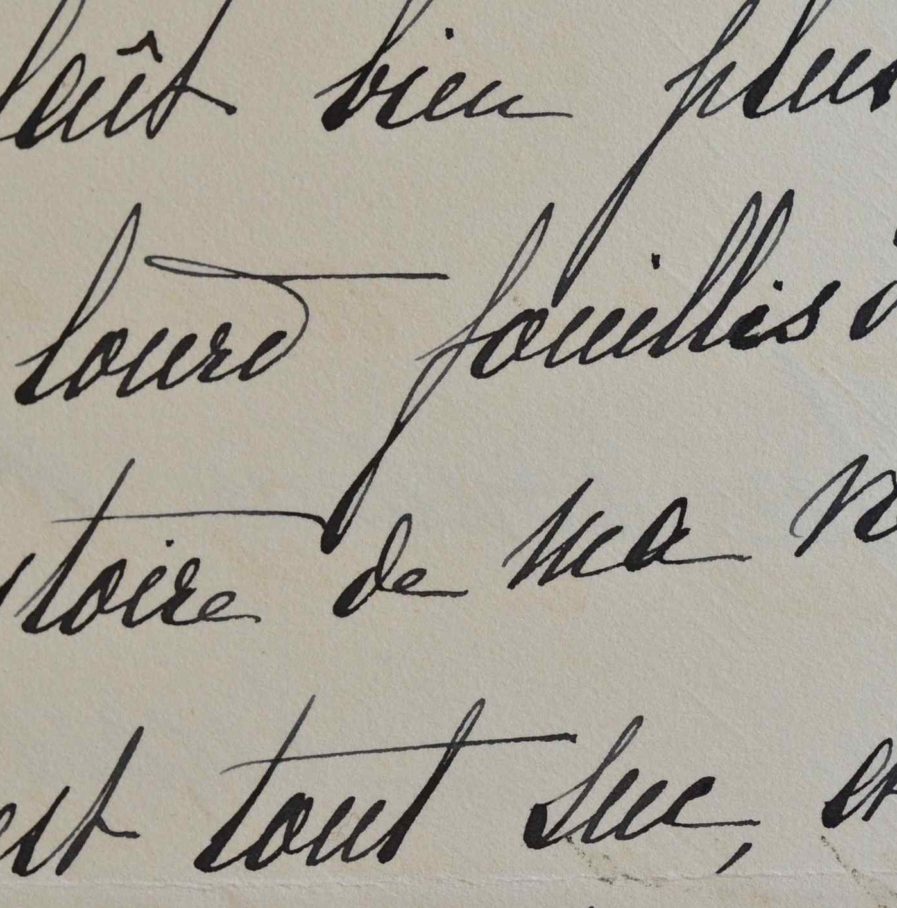 leût bien plus
lourd fouillis d
stoire de ma n
est tout suc, e